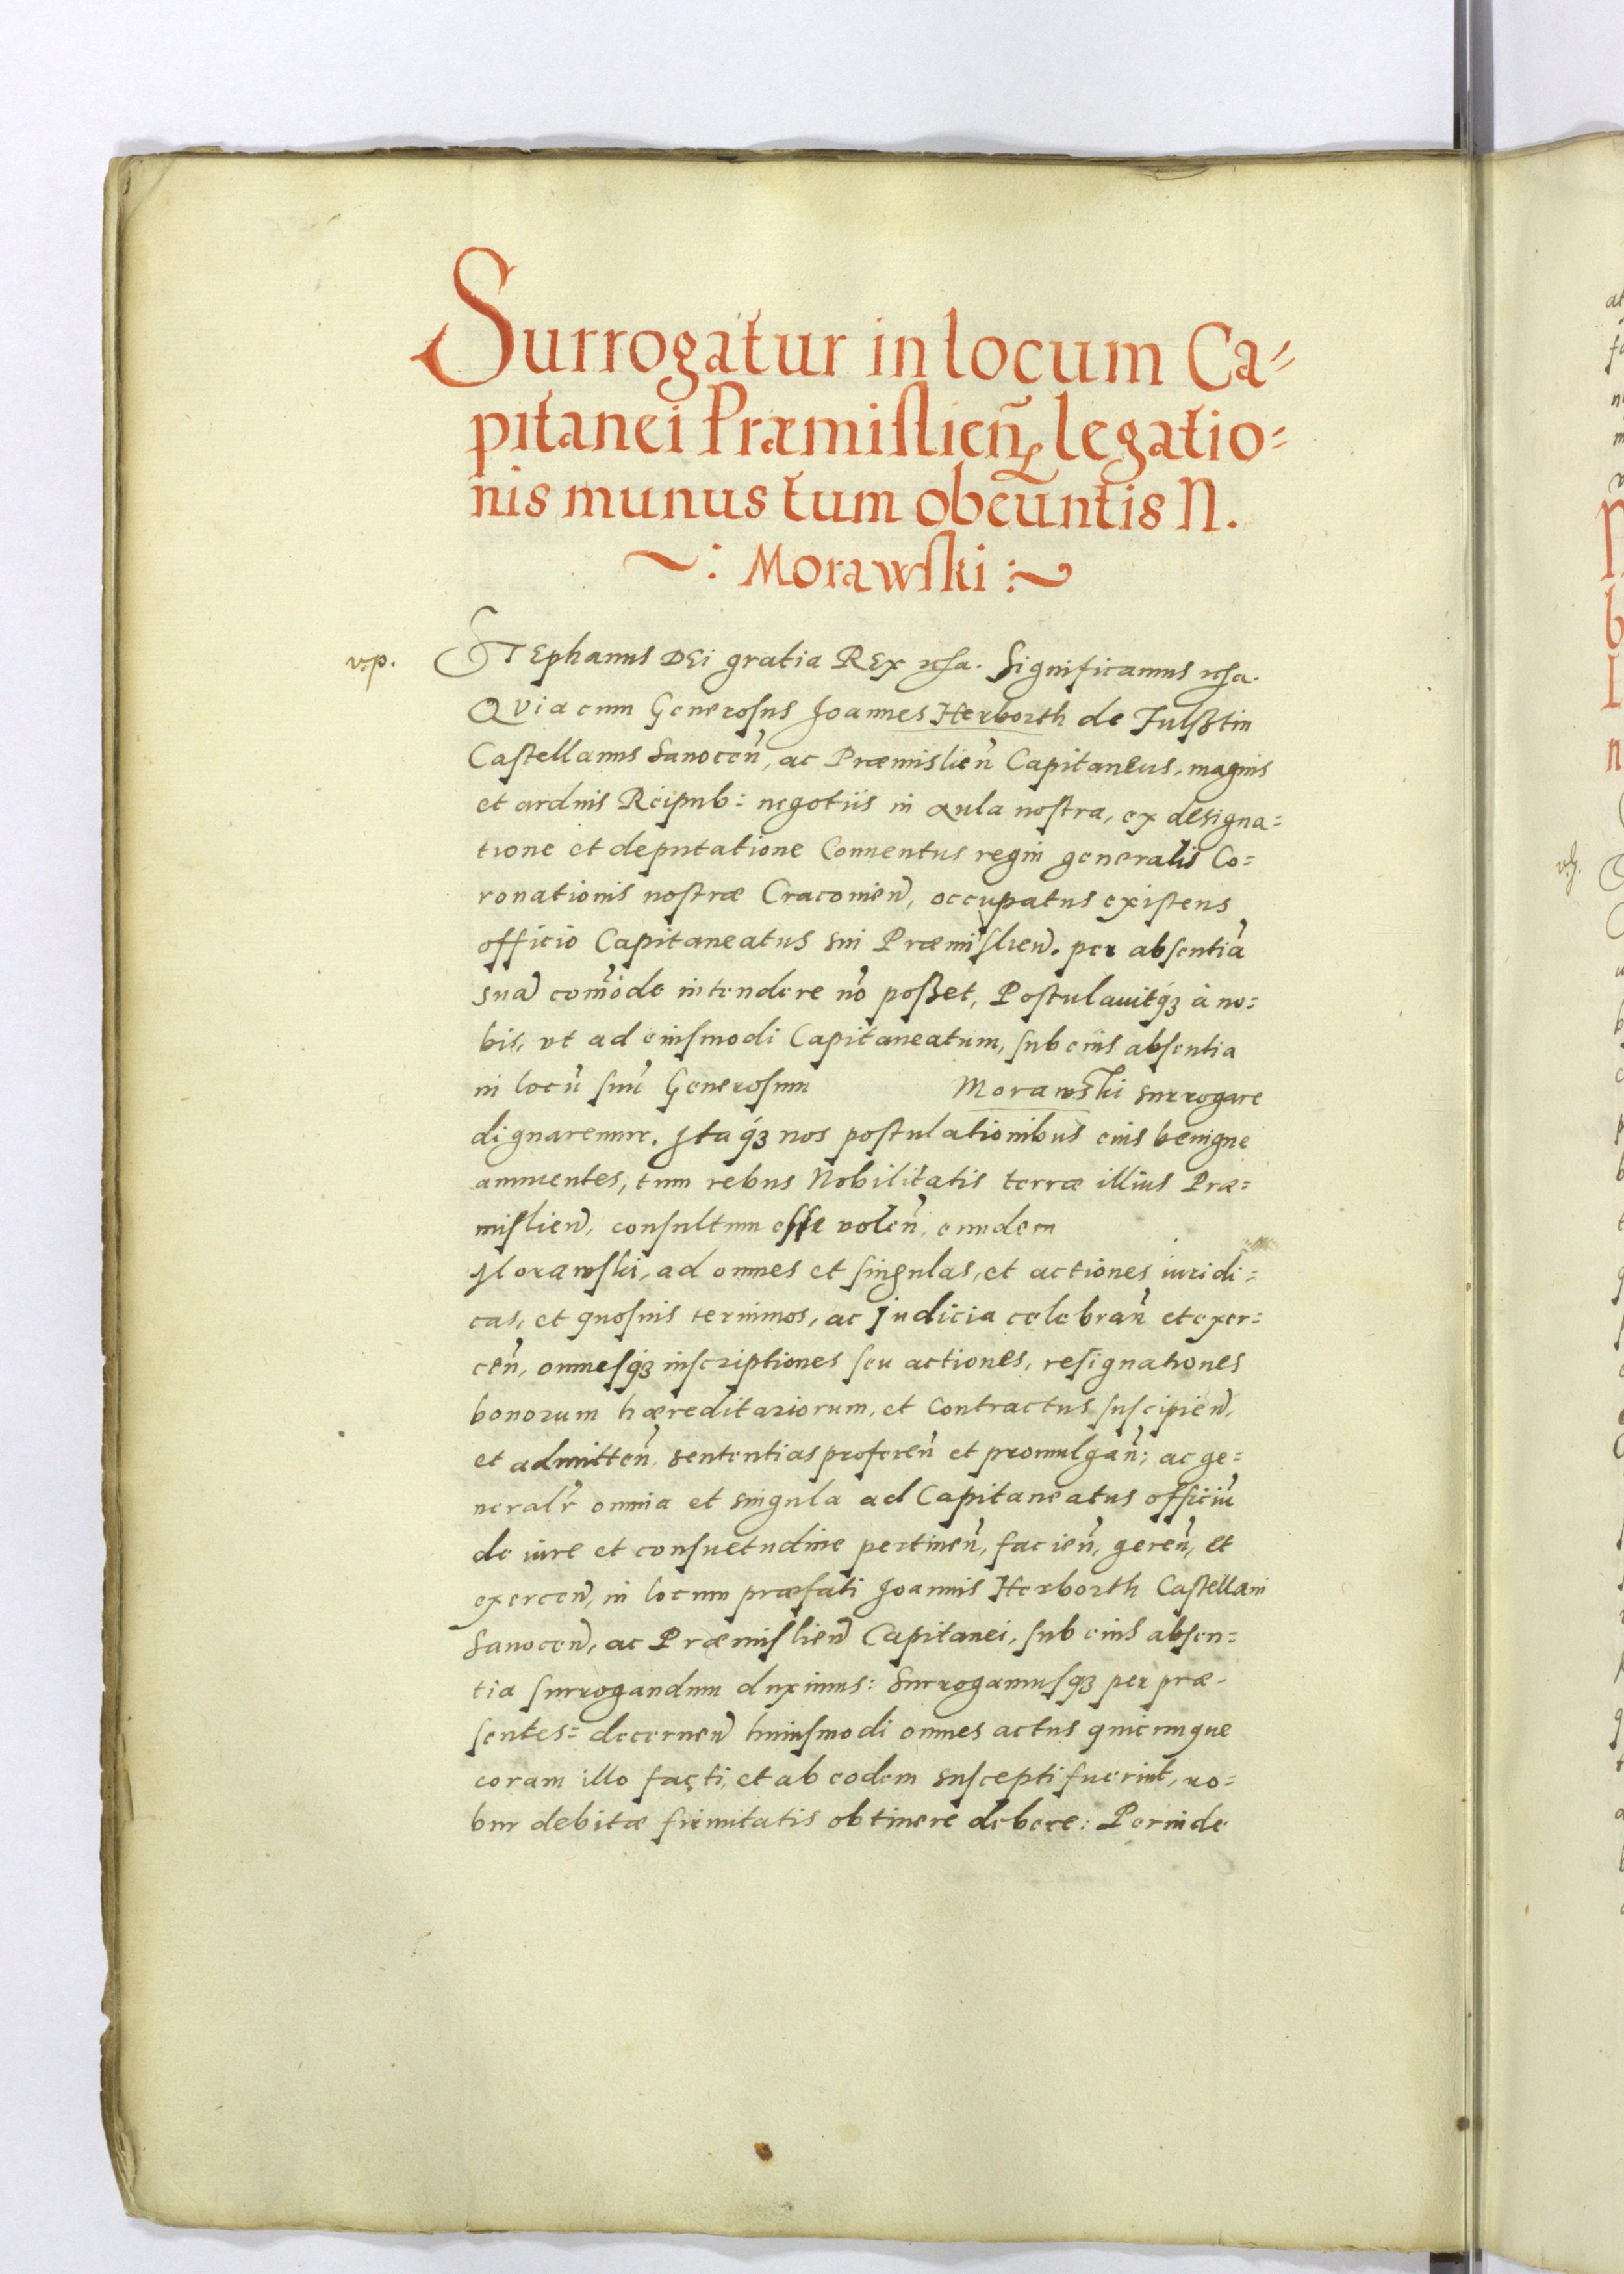 Surrogatur in locum Ca=
pitanei Præmislień legatio=
nis munus tum obeuntis N.
~: Morawski :~
v.p. STEphanus DEi gratia REx etc. Significamus etc.
QVia cum Generosus Joannes Herborth de Fulßtin
Castellanus Sanoceń, ac Præmislień Capitaneus, magnis
et arduis Reipub: negotiis in aula nostra, ex designa=
tione et deputatione Conuentus regni generalis Co=
ronationis nostræ Cracouień, occupatus existens
officio Capitaneatus sui Præmislień. per absentiā
suā com̄ode intendere nō poßet, Postulauitq́ꝫ à no=
bis, vt ad eiusmodi Capitaneatum, sub eius absentia
in locū suū Generosum Morawski surrogare
dignaremur. Itaq́ꝫ nos postulationibus eius benigne
annuentes, tum rebus Nobilitatis terræ illius Præ=
mislień, consultum esse voleń, eundem
Morawski, ad omnes et singulas, et actiones iuridi=
cas, et quosuis terminos, ac Judicia celebrań et exer=
ceń, omnesq́ꝫ inscriptiones seu actiones, resignationes
bonorum hæreditariorum, et Contractus suscipień,
et admitteń, sententias profereń et promulgań; ac ge=
neralr̃ omnia et singula ad Capitaneatus officiū
de iure et consuetudine pertineń, facień, gereń, et
exerceń, in locum præfati Joannis Herborth Castellani
Sanoceń, ac Præmislień Capitanei, sub eius absen=
tia surrogandum duximus: Surrogamusqꝫ per præ-
sentes= decerneń huiusmodi omnes actus quicunque
coram illo facti, et ab eodem suscepti fuerint, ro=
bur debitæ firmitatis obtinere debere: Perinde